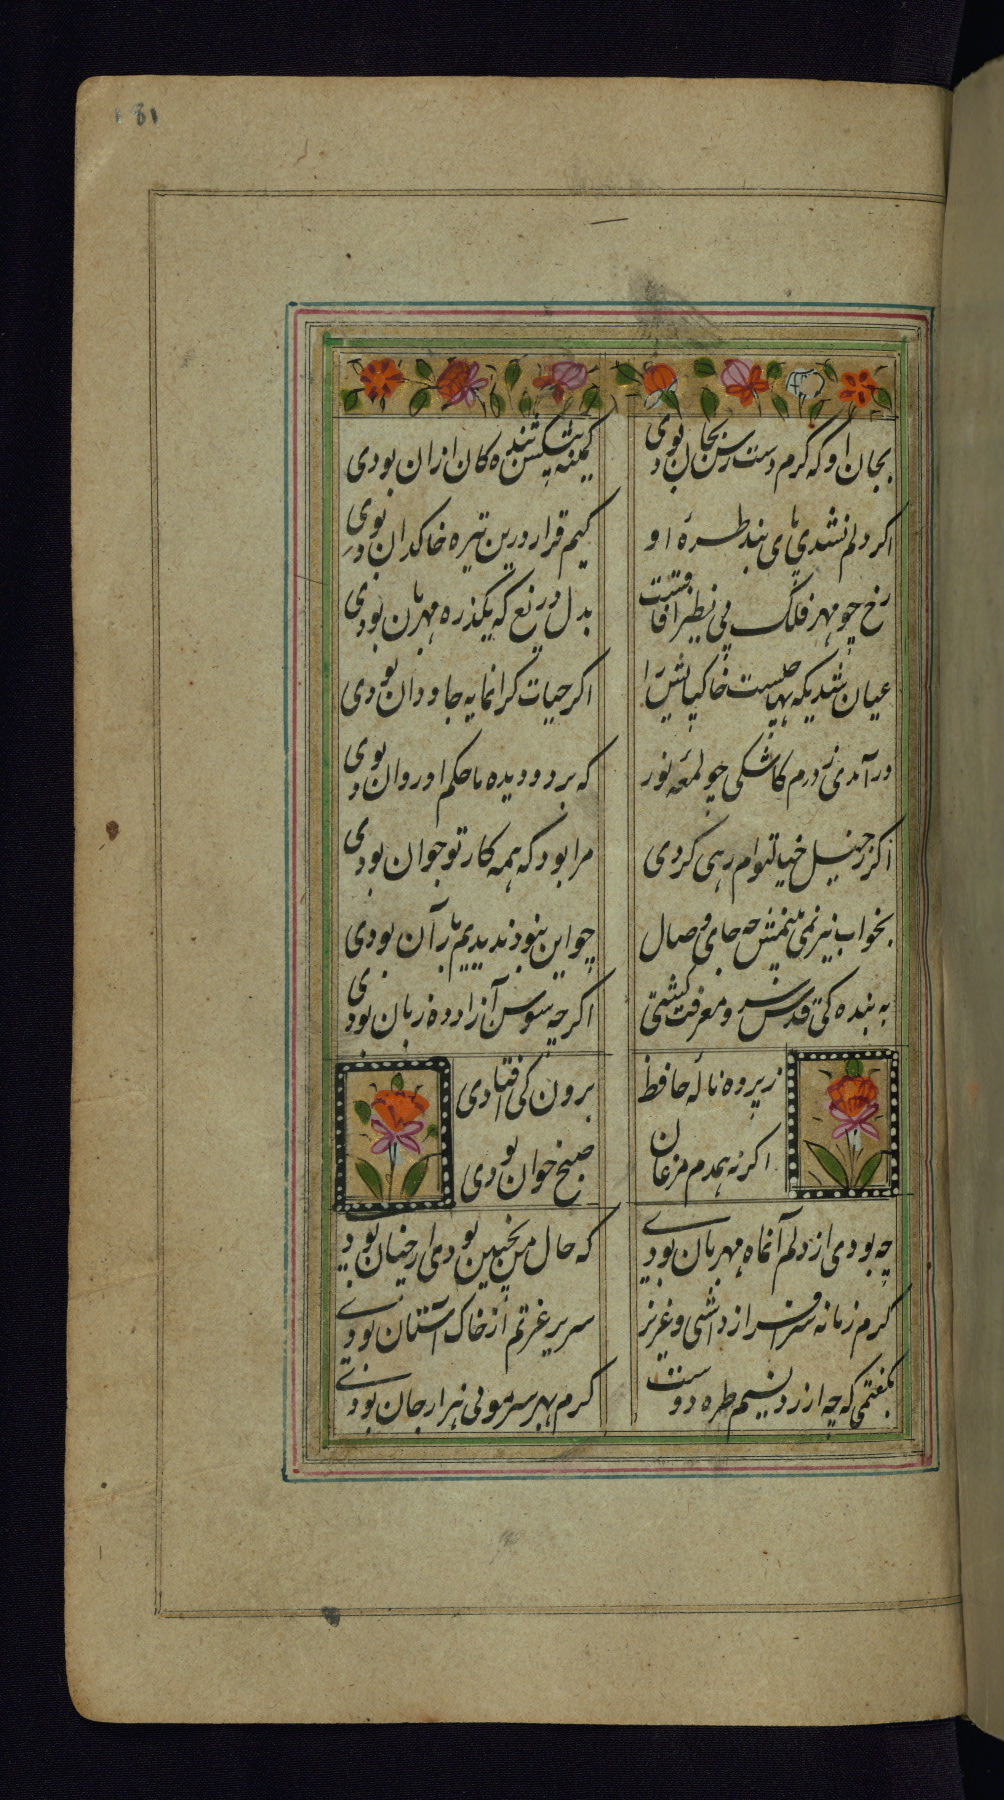 181
بجان او که کرم دست رس بجان بودی
کمینه پیشکش بنده کان ازان بودی
اکر دلم نشدی پای بند طره او
کیم قرار درین تیره خاکدان بودی
رخ چو مهر فلک بی نظیر افاقست
بدل دریغ که یکذره مهربان بودی
عیان شدیکه بها چیست خاکپایش را
اکر حیات کرانمایه جاودان بودی
درآمدی ز درم کاشکی چو لمعه نور
که بر دو دیده ما حکم او روان بودی
اکر خیالتوام رهی کردی
مرا بود که همه کار تو جوان بودی
بخواب نیز نمی بینمش چه جای وصال
چو این نبود ندیدیم باری آن بودی
به بنده کی قدس و معرفت کشتی
اکر چه سوسن آزاد ده زبان بودی
ز پرده ناله حافظ
برون کی افتادی
اکر نه همدم مرغان
صبح خوان بودی
چه بودی ار دلم آنماه مهربان بودی
که حال من نچنین بودی ار چنان بودی
کرم زمانه سرافراز داشتی و عزیز
سریر عزتم از خاک آستان بودی
بکفتمی که چه ارزد نسیم طره دوست
کرم بهر سر موئی هزار جان بودی